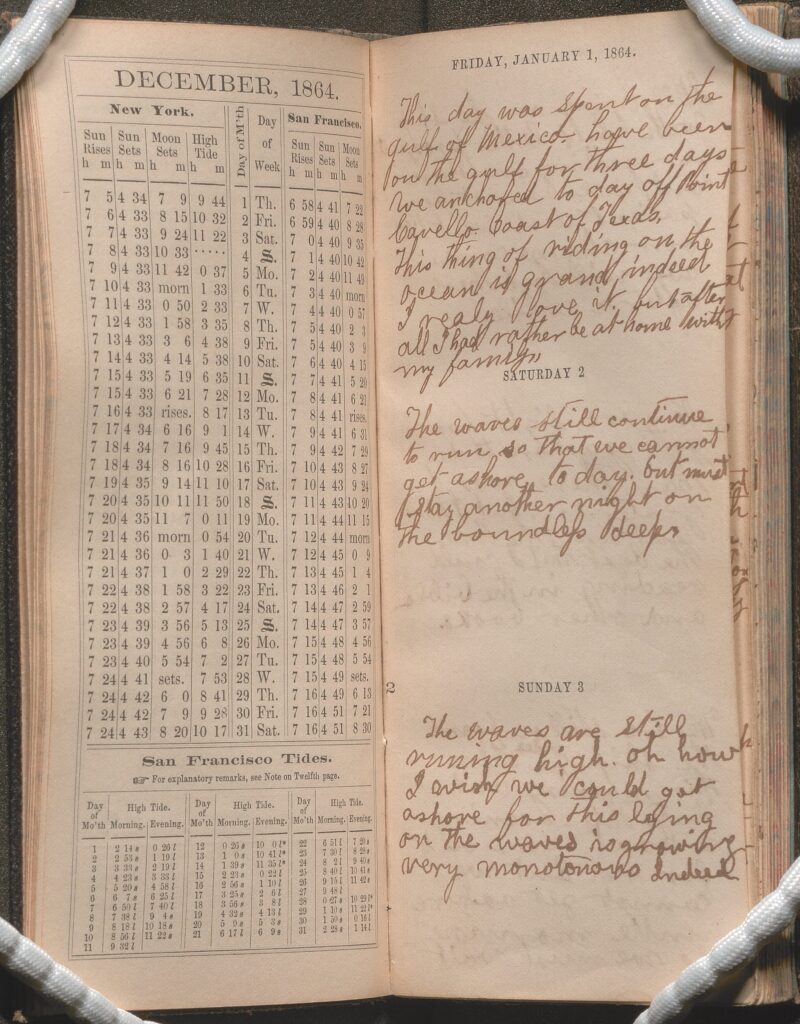 DECEMBER, 1864.
New York.
San Francisco.
Sun Rises Sun Sets Moon Sets High Tide Day of M'th Day of Week Sun Rises Sun Sets Moon Sets
h m h m h m h m h m h m h m
7 5 4 34 7 9 9 44 1 Th. 6 58 4 41 7 22
7 6 4 33 8 15 10 32 2 Fri. 6 59 4 40 8 28
7 7 4 33 9 24 11 22 3 Sat. 7 0 4 40 9 35
7 8 4 33 10 33 ..... 4 S. 7 1 4 40 10 42
7 9 4 33 11 42 0 37 5 Mo. 7 2 4 40 11 49
7 10 4 33 morn 1 33 6 Tu. 7 3 4 40 morn
7 11 4 33 0 50 2 33 7 W. 7 4 4 40 0 57
7 12 4 33 1 58 3 35 8 Th. 7 5 4 40 2 3
7 13 4 33 3 6 4 38 9 Fri. 7 5 4 40 3 9
7 14 4 33 4 14 5 38 10 Sat. 7 6 4 40 4 15
7 15 4 33 5 19 6 35 11 S. 7 7 4 41 5 20
7 15 4 33 6 21 7 28 12 Mo. 7 8 4 41 6 21
7 16 4 33 rises. 8 17 13 Tu. 7 8 4 41 rises
7 17 4 34 6 16 9 1 14 W. 7 9 4 41 6 31
7 18 4 34 7 16 9 45 15 Th. 7 9 4 42 7 29
7 18 4 34 8 16 10 28 16 Fri. 7 10 4 43 8 27
7 19 4 35 9 14 11 10 17 Sat. 7 10 4 43 9 24
7 20 4 35 10 11 11 50 18 S. 7 11 4 43 10 20
7 20 4 35 11 7 0 11 19 Mo. 7 11 4 44 11 15
7 21 4 36 morn 0 54 20 Tu. 7 12 4 44 morn
7 21 4 36 0 3 1 40 21 W. 7 12 4 45 0 9
7 21 4 37 1 0 2 29 22 Th. 7 13 4 45 1 4
7 22 4 38 1 58 3 22 23 Fri. 7 13 4 46 2 1
7 22 4 38 2 57 4 17 24 Sat. 7 14 4 47 2 59
7 23 4 39 3 56 5 13 25 S. 7 14 4 47 3 57
7 23 4 39 4 56 6 8 26 Mo. 7 15 4 48 4 56
7 23 4 40 5 54 7 2 27 Tu. 7 15 4 48 5 54
7 24 4 41 sets. 7 53 28 W. 7 15 4 49 sets.
7 24 4 42 6 0 8 41 29 Th. 7 16 4 49 6 13
7 24 4 42 7 9 9 28 30 Fri. 7 16 4 51 7 21
7 24 4 43 8 20 10 17 31 Sat. 7 16 4 51 8 30
San Francisco Tides.
☞ For explanatory remarks, see Note on Twelfth page.
Day of Mo'th High Tide. Morning. Evening. Day of Mo'th High Tide. Morning. Evening. Day of Mo'th High Tide. Morning. Evening.
FRIDAY, JANUARY 1, 1864.
This day was spent on the
gulf of Mexico. have been
on the gulf for three days
we anchored to day off Point
Cavello. Coast of Texas.
This thing of riding on the
ocean is grand, indeed
I realy love it. but after
all I had rather be at home with
my family,
SATURDAY 2
The waves still continue
to run, so that we cannot
get ashore, to day. but must
stay another night on
the boundless deep,
2
SUNDAY 3
The waves are still
runing high. oh how
I wish we could get
ashore for this laying
on the waves is growing
very monotonous indeed